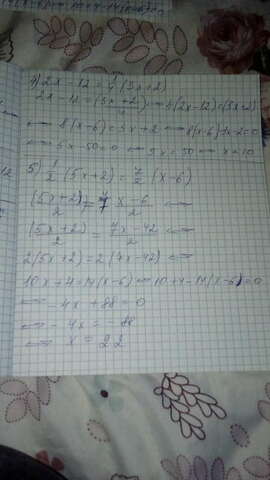 4) 2x - 12 = (5x+2)
2x - 12 = (5x+2) 4(2x-12)=(5x+2)
⟺ 8(x-6)=5x+2 ⟺ 8(x-6)-5x-2=0
⟺ 5x-50=0 ⟺ 5x=50 ⟺ x=10
5) 1/2 (5x+2) = 7/2 (x-6)
(5x+2)/2 = 7 x-6/2
(5x+2)/2 = 7x-42/2 ⟺
2(5x+2) = 2(7x-42) ⟺
10x+4=14(x-6) ⟺ 10+4-14(x-6)=0
⟺ -4x+88=0
⟺ -4x=-88
⟺ x=22